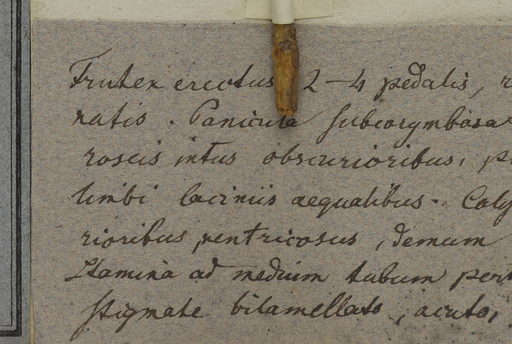 Frutex erectus 2-4 pedalis,
natis. Panicula subcorymbosa
roseis intus obscurioribus,
limbi laciniis aequalibus. Caly
rioribus ventricosus, demum
Stamina ad medium tubum
stigmate bilamellato, acuto,